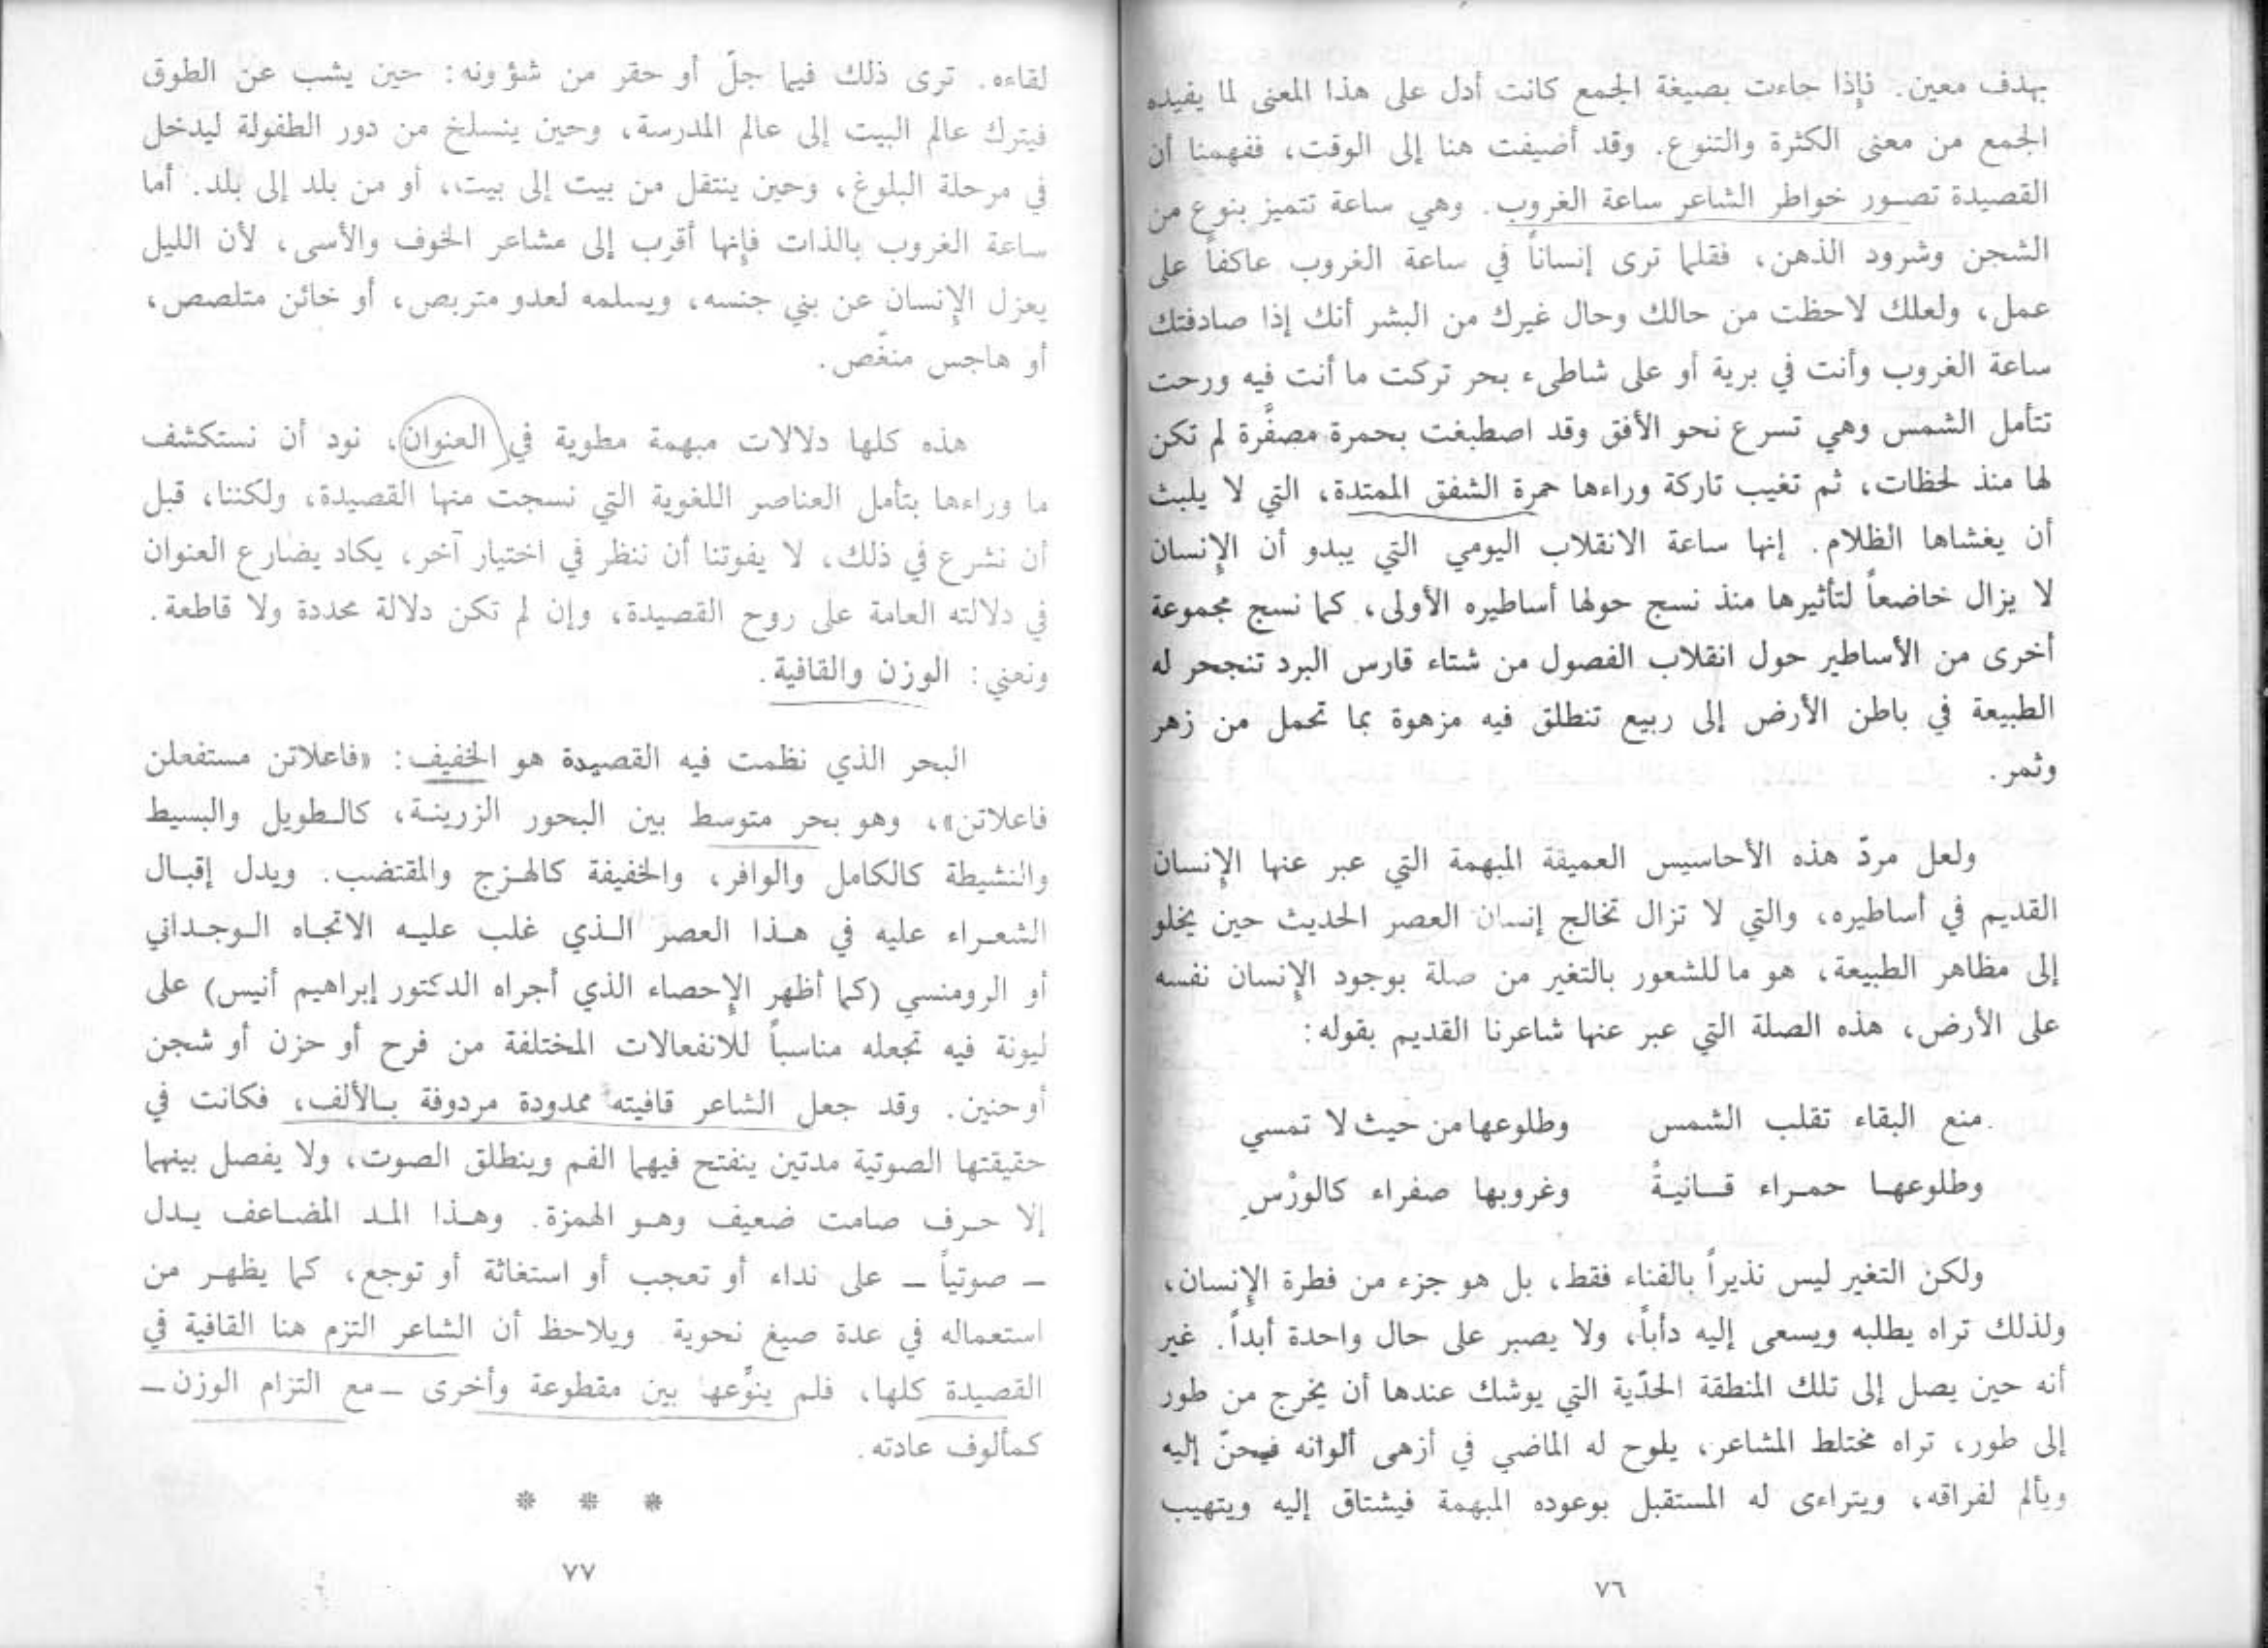 بهدف معين. فإذا جاءت بصيغة الجمع كانت أدل على هذا المعنى لما يفيده
الجمع من معنى الكثرة والتنوع. وقد أضيفت هنا إلى الوقت، ففهمنا أن
القصيدة تصور خواطر الشاعر ساعة الغروب. وهي ساعة تتميز بنوع من
الشجن وشرود الذهن، فقلما ترى إنساناً في ساعة الغروب عاكفاً على
عمل، ولعلك لاحظت من حالك وحال غيرك من البشر أنك إذا صادفتك
ساعة الغروب وأنت في برية أو على شاطىء بحر تركت ما أنت فيه ورحت
تتأمل الشمس وهي تسرع نحو الأفق وقد اصطبغت بحمرة مصفَّرة لم تكن
لها منذ لحظات، ثم تغيب تاركة وراءها حمرة الشفق الممتدة، التي لا يلبث
أن يغشاها الظلام. إنها ساعة الانقلاب اليومي التي يبدو أن الإنسان
لا يزال خاضعاً لتأثيرها منذ نسج حولها أساطيره الأولى، كما نسج مجموعة
أخرى من الأساطير حول انقلاب الفصول من شتاء قارس البرد تنجحر له
الطبيعة في باطن الأرض إلى ربيع تنطلق فيه مزهوة بما تحمل من زهر
وثمر.
ولعل مردّ هذه الأحاسيس العميقة المبهمة التي عبر عنها الإنسان
القديم في أساطيره، والتي لا تزال تخالج إنسان العصر الحديث حين يخلو
إلى مظاهر الطبيعة، هو ما للشعور بالتغير من صلة بوجود الإنسان نفسه
على الأرض، هذه الصلة التي عبر عنها شاعرنا القديم بقوله:
منع البقاء تقلب الشمس وطلوعها من حيث لا تمسي
وطلوعها حمراء قانيةً وغروبها صفراء كالورْسِ
ولكن التغير ليس نذيراً بالفناء فقط، بل هو جزء من فطرة الإنسان،
ولذلك تراه يطلبه ويسعى إليه دأباً، ولا يصبر على حال واحدة أبداً. غير
أنه حين يصل إلى تلك المنطقة الحدّية التي يوشك عندها أن يخرج من طور
إلى طور، تراه مختلط المشاعر، يلوح له الماضي في أزهى ألوانه فيحنّ إليه
ويألم لفراقه، ويتراءى له المستقبل بوعوده المبهمة فيشتاق إليه ويتهيب
٧٦
لقاءه. ترى ذلك فيما جلّ أو حقر من شؤونه: حين يشب عن الطوق
فيترك عالم البيت إلى عالم المدرسة، وحين ينسلخ من دور الطفولة ليدخل
في مرحلة البلوغ، وحين ينتقل من بيت إلى بيت، أو من بلد إلى بلد. أما
ساعة الغروب بالذات فإنها أقرب إلى مشاعر الخوف والأسى، لأن الليل
يعزل الإنسان عن بني جنسه، ويسلمه لعدو متربص، أو خائن متلصص،
أو هاجس منغّص.
هذه كلها دلالات مبهمة مطوية في العنوان، نود أن نستكشف
ما وراءها بتأمل العناصر اللغوية التي نسجت منها القصيدة، ولكننا، قبل
أن نشرع في ذلك، لا يفوتنا أن ننظر في اختيار آخر، يكاد يضارع العنوان
في دلالته العامة على روح القصيدة، وإن لم تكن دلالة محددة ولا قاطعة.
ونعني: الوزن والقافية.
البحر الذي نظمت فيه القصيدة هو الخفيف: «فاعلاتن مستفعلن
فاعلاتن»، وهو بحر متوسط بين البحور الزرينة، كالطويل والبسيط
والنشيطة كالكامل والوافر، والخفيفة كالهزج والمقتضب. ويدل إقبال
الشعراء عليه في هذا العصر الذي غلب عليه الاتجاه الوجداني
أو الرومنسي (كما أظهر الإحصاء الذي أجراه الدكتور إبراهيم أنيس) على
ليونة فيه تجعله مناسباً للانفعالات المختلفة من فرح أو حزن أو شجن
أو حنين. وقد جعل الشاعر قافيته ممدودة مردوفة بالألف، فكانت في
حقيقتها الصوتية مدتين ينفتح فيهما الفم وينطلق الصوت، ولا يفصل بينهما
إلا حرف صامت ضعيف وهو الهمزة. وهذا المد المضاعف يدل
– صوتياً – على نداء أو تعجب أو استغاثة أو توجع، كما يظهر من
استعماله في عدة صيغ نحوية. ويلاحظ أن الشاعر التزم هنا القافية في
القصيدة كلها، فلم ينوِّعها بين مقطوعة وأخرى – مع التزام الوزن –
كمألوف عادته.
* * *
٧٧